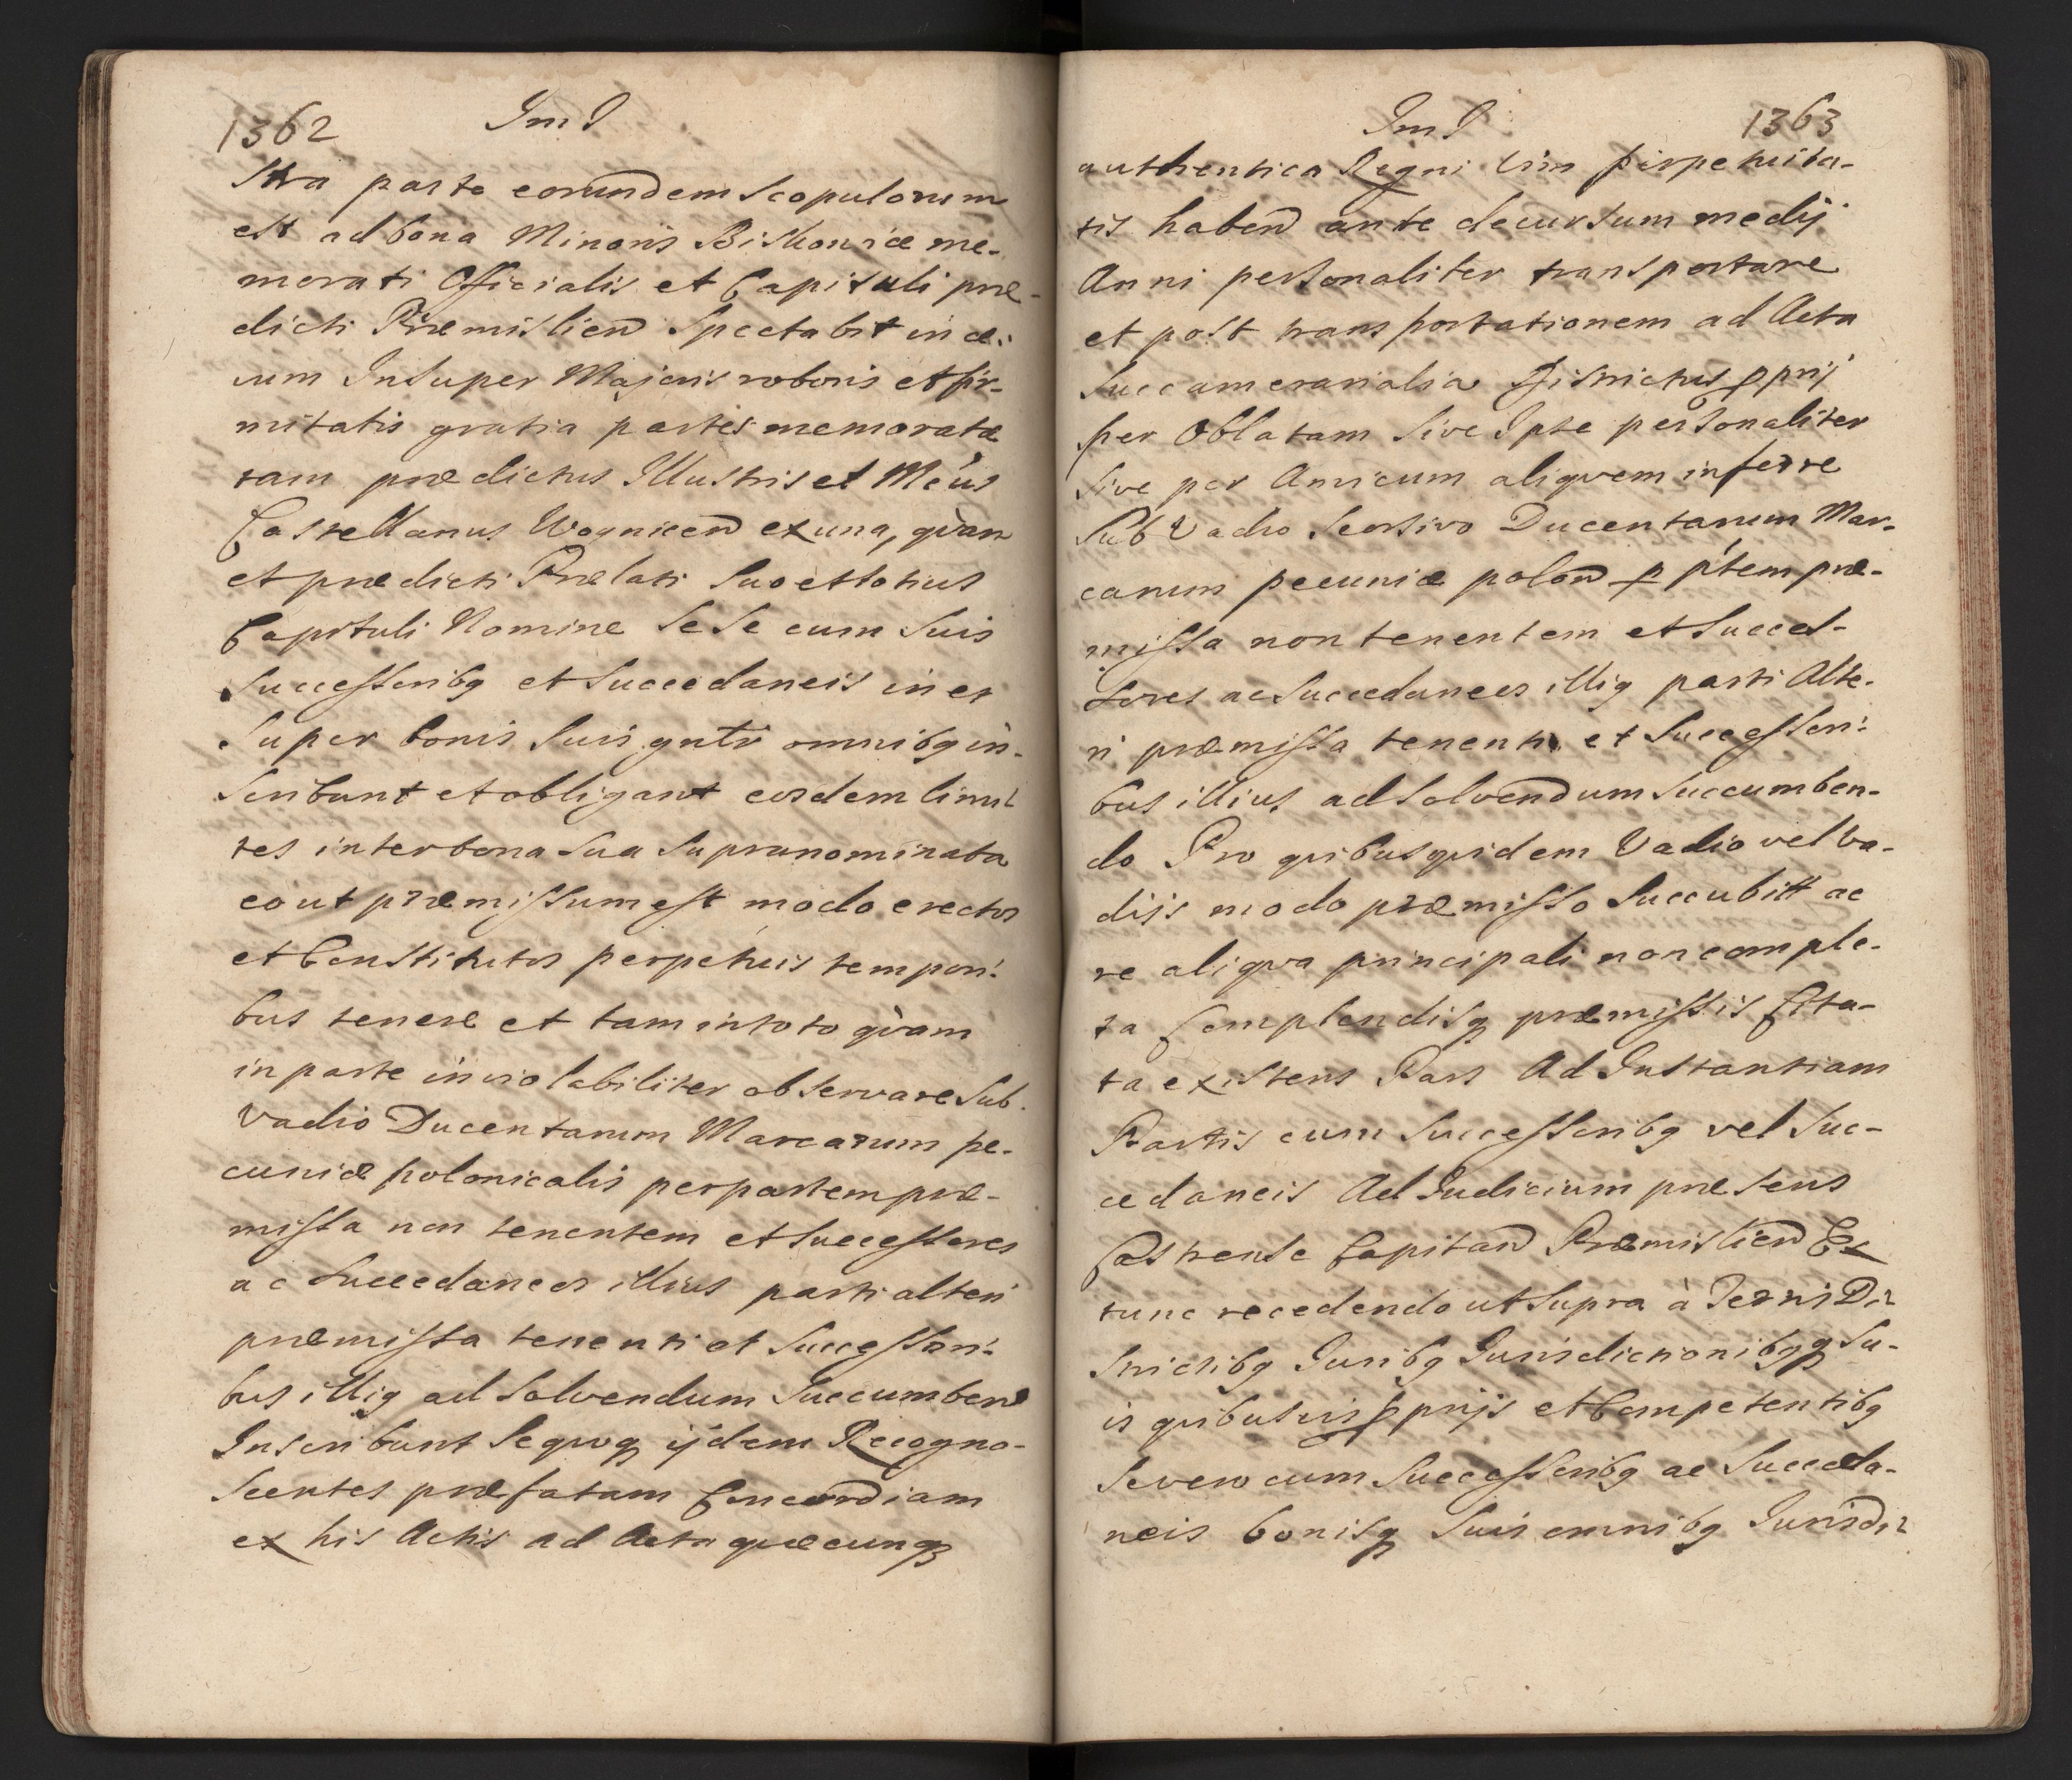 1362 Im I
Stra parte eorundem Scopulorum
est ad bona Minoris Biskovicæ me-
morati Officialis et Capituli præ-
dicti Præmislien̄ Spectabit in æ-
vum Insuper Majoris roboris et fir-
mitatis gratia partes memoratæ
tam prædictus Illustris et Mcus
Castellanus Woynicen̄ ex una, qvam
et prædicti Prælati Suo et totius
Capituli Nomine Se Se cum Suis
Successoribq et Succedaneis in et
Super bonis Suis gntr omnibq in-
Scribunt et obligant eosdem limi-
tes inter bona Sua Supranominata
eo ut præmissum est modo erectos
et Constitutos perpetuis tempori-
bus tenere et tam in toto qvam
in parte inviolabiliter observare Sub
Vadio Ducentarum Marcarum pe-
cuniæ polonicalis per partem præ-
missa non tenentem et Successores
ac Succedaneos illius parti alteri
præmissa tenenti et Successori-
bus illiq ad Solvendum Succumben̄
Inscribunt Seqvoq ijdem Recogno-
Scentes præfatam Concordiam
ex his Actis ad Acta quæcunq
Im I 1363
authentica Regni Vim perpetuita-
tis haben̄ ante decursum medij
Anni personaliter transportare
et post transportationem ad Acta
Succameraralia Districtus pprij
per Oblatam Sive Ipse personaliter
Sive per Amicum aliqvem inferre
Sub Vadio Seorsivo Ducentarum Mar-
carum pecuniæ polon̄ p ptem præ-
missa non tenentem et Succes-
Sores ac Succedaneos illiq parti Alte-
ri præmissa tenenti et Successori-
bus illius ad Solvendum Succumben-
do Pro qvibusqvidem Vadio vel va-
dijs modo præmisso Succubitt ac
re aliqva principali non comple-
ta Complendisq præmissis Cita-
ta existens Pars Ad Instantiam
Partis cum Successoribq vel Suc-
cedaneis Ad Iudicium præsens
Castrense Capitan̄ Præmislien̄ Ex
tunc recedendo ut Supra à Terris Di-
Strictibq Iuribq Iurisdictionibqq Su-
is qvibusvis pprijs et Competentibq
Se vero cum Successoribq ac Succeda-
neis bonisq Suis omnibq Iurisdi-